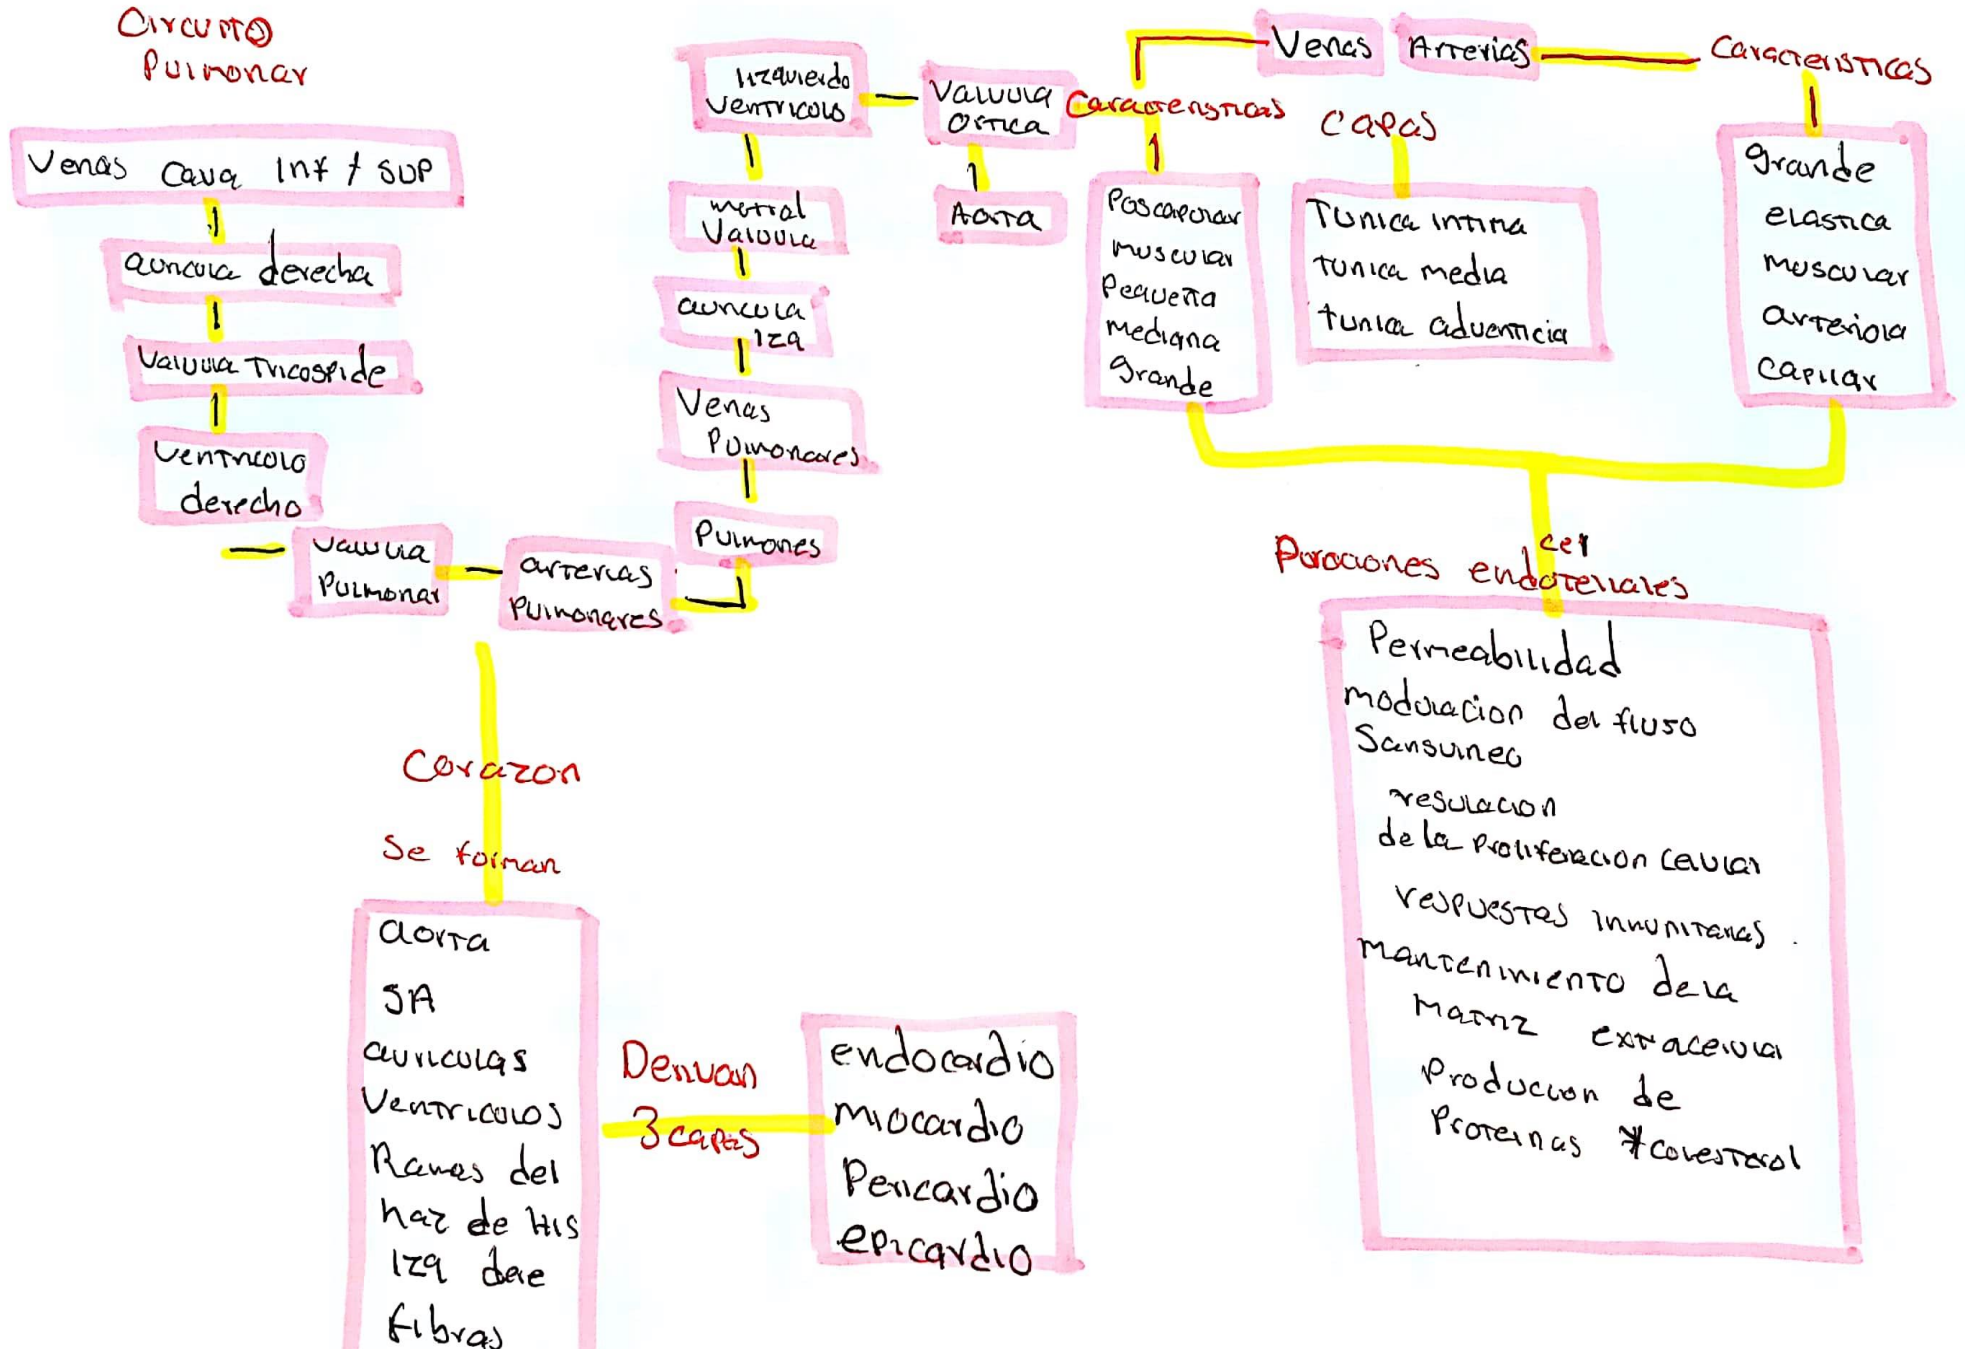 Circuito
Pulmonar
Venas Cava Inf / SUP
auricula derecha
Valvula Tricospide
Ventricolo
derecho
Valvula
Pulmonar
arterias
Pulmonares
Pulmones
Venas
Pulmonares
auricula
izq
metral
Valvula
Izquierdo
Ventricolo
Valvula
Ortica
Aorta
Venas
Caracteristicas
Poscapilar
muscular
Pequeña
mediana
grande
Capas
Tunica intina
Tunica media
tunica adventicia
Arterias
Caracteristicas
grande
elastica
muscular
arteriola
capilar
cel
endoteliales
Permeabilidad
modulacion del fluso
Sansuineo
resulacion
de la Proliferacion Celular
respuestas innunitarias
mantenimiento de la
Matriz extracelular
Produccion de
Proteinas colesterol
Corazon
Se forman
aorta
SA
auriculas
Ventricolos
Ramas del
haz de His
izq dere
fibras
Derivan
3 capas
endocardio
miocardio
Pericardio
epicardio